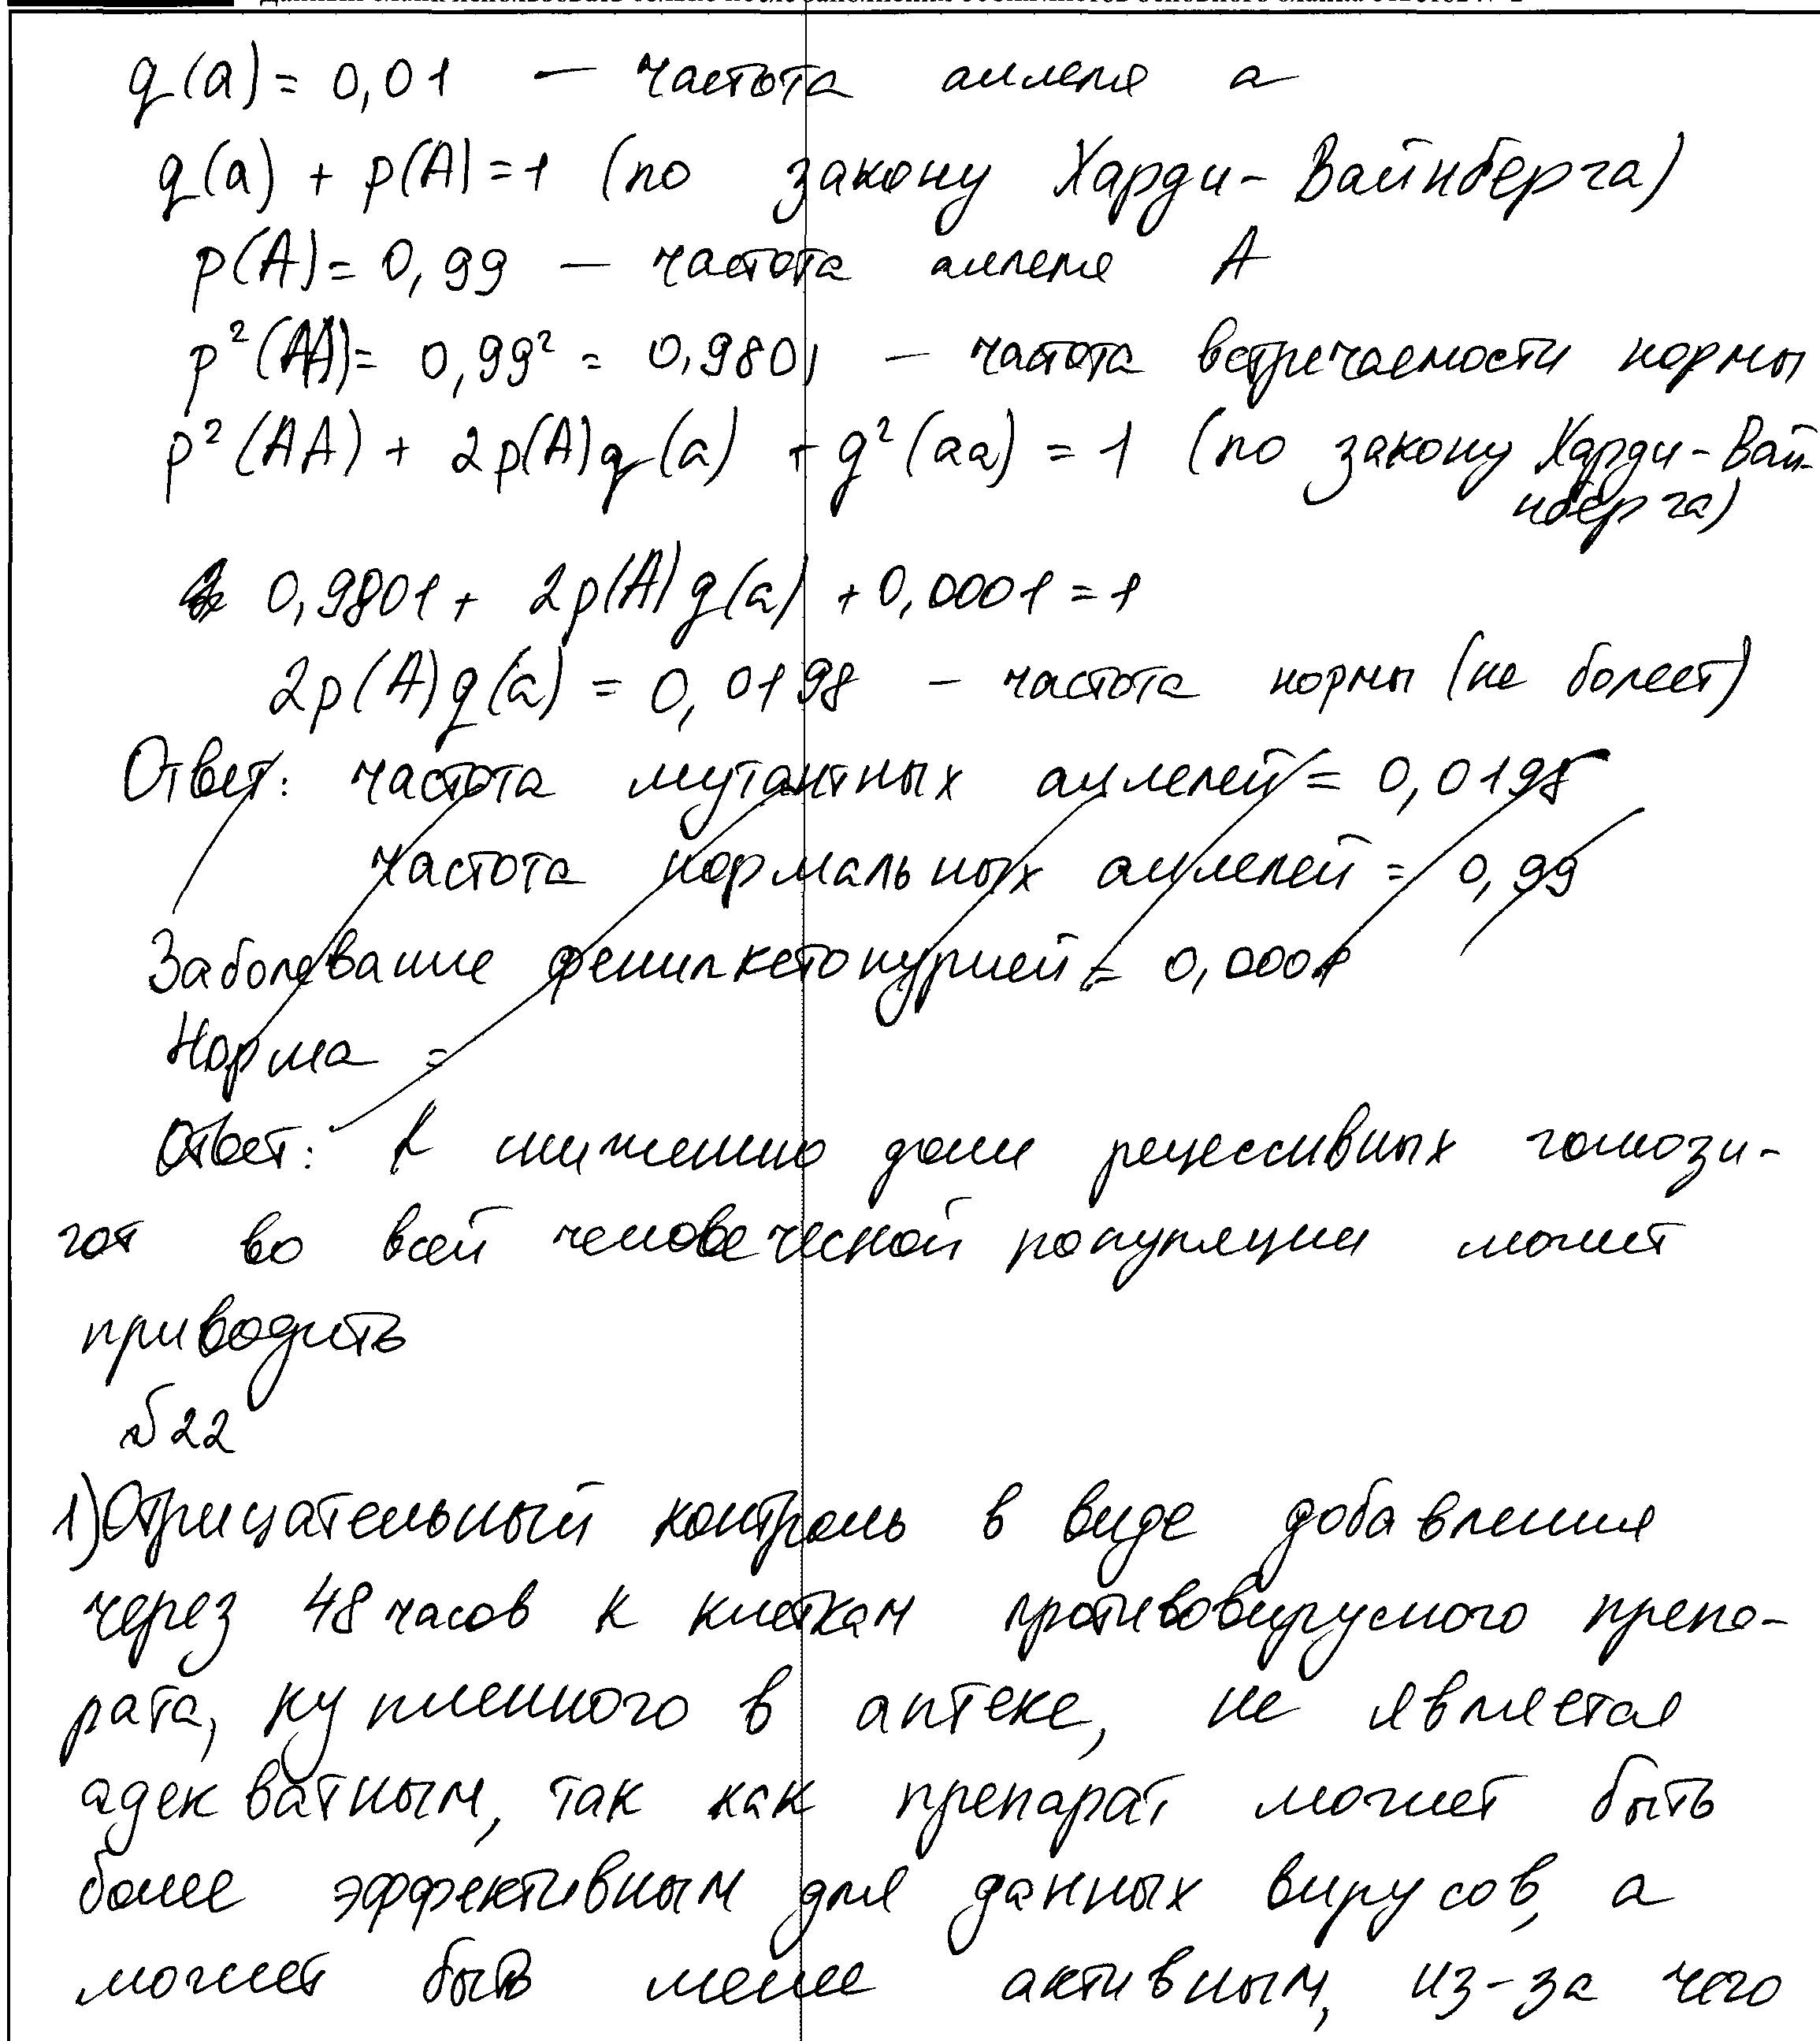 q(a) = 0,01 — частота аллеля a
q(a) + p(A) = 1 (по закону Харди-Вайнберга)
p(A) = 0,99 — частота аллеля A
p²(AA) = 0,99² = 0,9801 — частота встречаемости нормы
p²(AA) + 2p(A)q(a) + q²(aa) = 1 (по закону Харди-Вай-
нберга)
0,9801 + 2p(A)q(a) + 0,0001 = 1
2p(A)q(a) = 0,0198 — частота нормы (не болеет)
Ответ: частота мутантных аллелей = 0,0198
частота нормальных аллелей = 0,99
Заболевание фенилкетонурией = 0,0001
Норма =
Ответ: К снижению доли рецессивных гомози-
гот во всей человеческой популяции может
приводить
№22
1) Отрицательный контроль в виде добавления
через 48 часов к клеткам противовирусного препа-
рата, купленного в аптеке, не является
адекватным, так как препарат может быть
более эффективным для данных вирусов, а
может быть менее активным, из-за чего